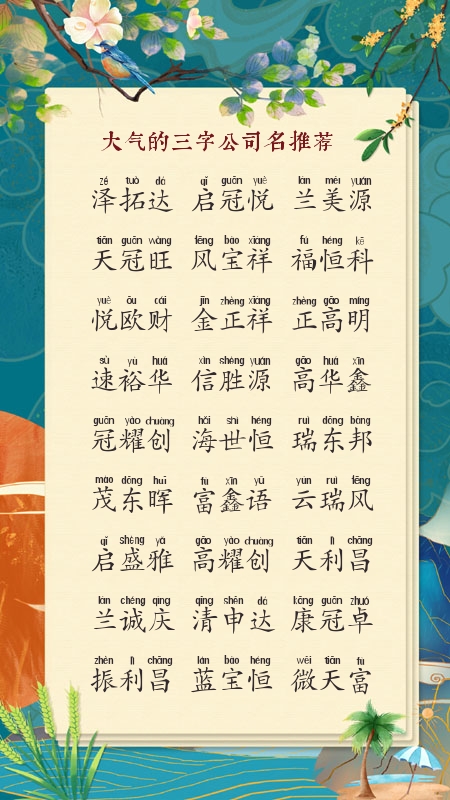 大气的三字公司名推荐
zé tuò dá qǐ guān yuè lán měi yuán
泽拓达 启冠悦 兰美源
tiān guān wàng fēng bǎo xiáng fú héng kē
天冠旺 风宝祥 福恒科
yuè ōu cái jīn zhèng xiáng zhèng gāo míng
悦欧财 金正祥 正高明
sù yù huá xìn shèng yuán gāo huá xīn
速裕华 信胜源 高华鑫
guān yào chuàng hǎi shì héng ruì dōng bāng
冠耀创 海世恒 瑞东邦
mào dōng huī fù xīn yǔ yún ruì fēng
茂东晖 富鑫语 云瑞风
qǐ shèng yǎ gāo yào chuàng tiān lì chāng
启盛雅 高耀创 天利昌
lán chéng qìng qīng shēn dá kāng guān zhuó
兰诚庆 清申达 康冠卓
zhèn lì chāng lán bǎo héng wēi tiān fù
振利昌 蓝宝恒 微天富